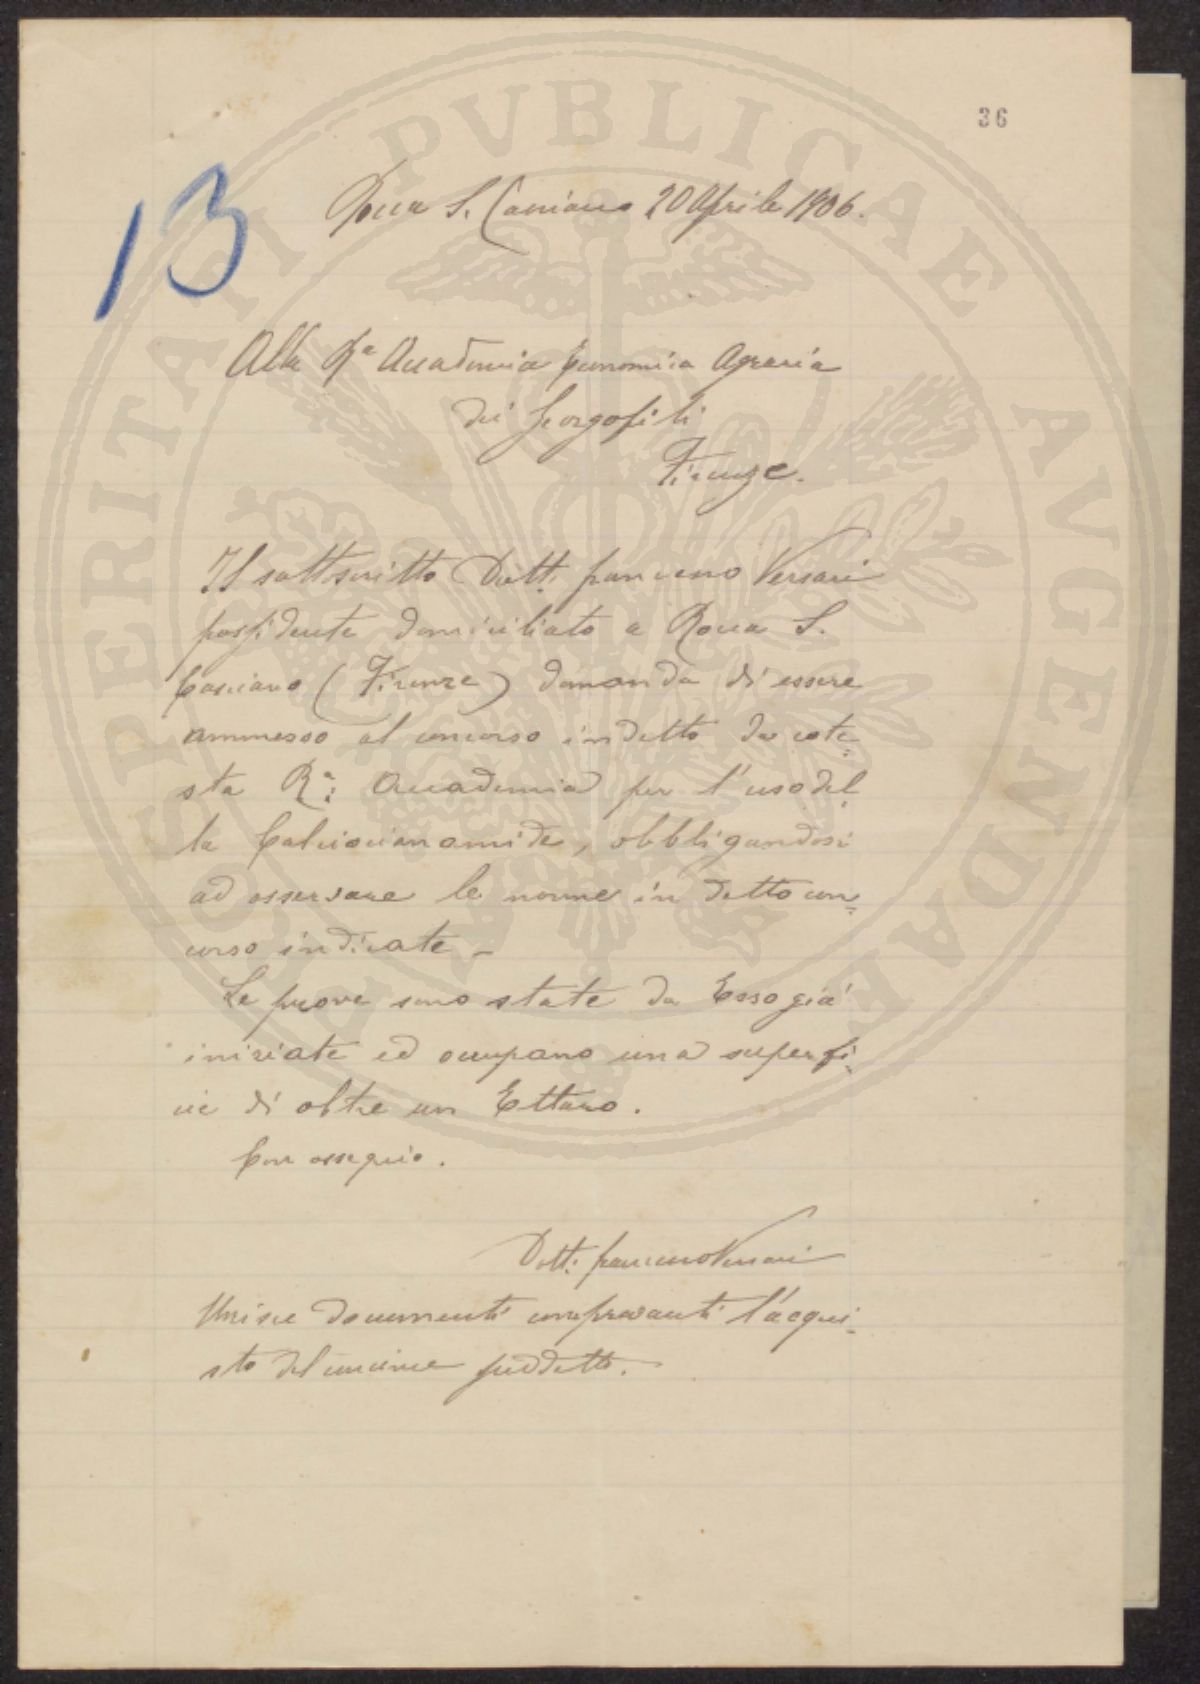 36
13
Rocca S. Casciano 20 Aprile 1906.
Alla Rª Accademia Economica Agraria
dei Georgofili
Firenze.
Il sottoscritto Dott. Francesco Versari
possidente domiciliato a Rocca S.
Casciano (Firenze) domanda di essere
ammesso al concorso indetto da cote=
sta Rª: Accademia per l'uso del=
la Calciocianamide, obbligandosi
ad osservare le norme in detto con=
corso indicate –
Le prove sono state da Esso già
iniziate ed occupano una superfi=
cie di oltre un Ettaro.
Con ossequio.
Dott. Francesco Versari
Unisce documenti comprovanti l'acqui=
sto del concime suddetto.
PROSPERITATI PVBLICAE AVGENDAE